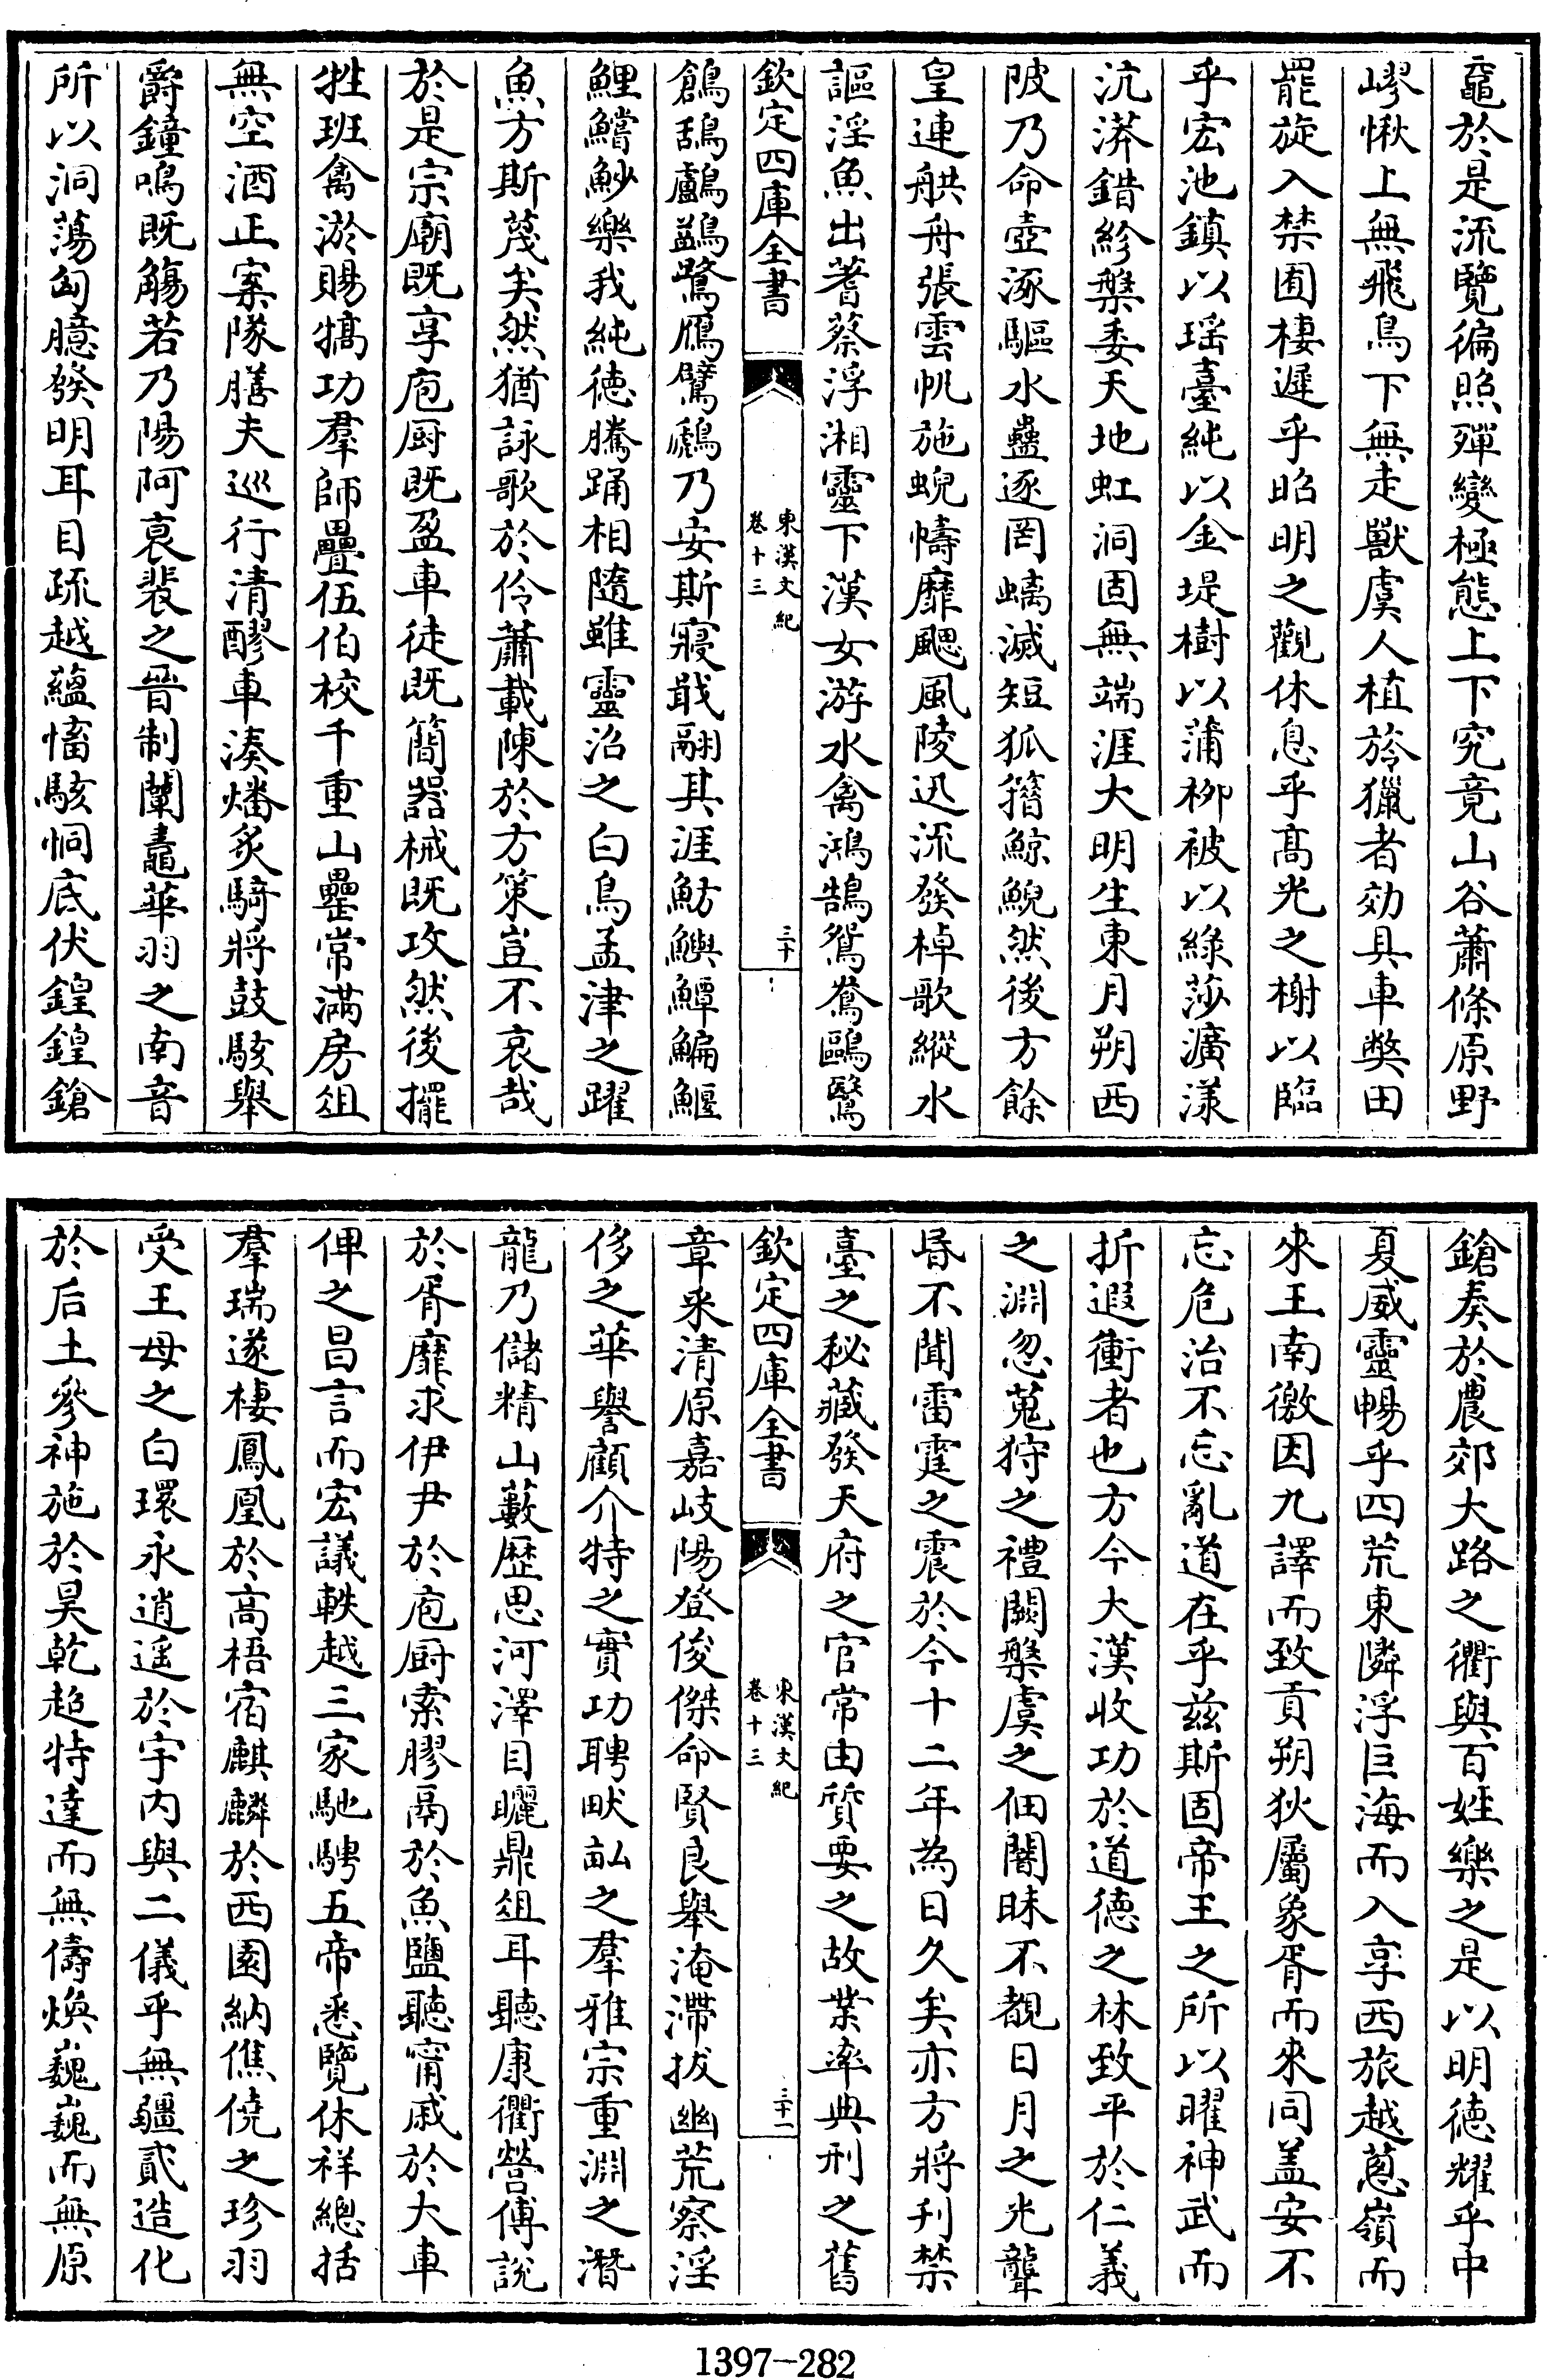 鼋於是流覽徧照殫變極態上下究竟山谷蕭條原野
嵺愀上無飛鳥下無走獸虞人植旍獵者効具車獘田
罷旋入禁囿棲遲乎昭明之觀休息乎髙光之榭以臨
乎宏池鎮以瑶臺純以金堤樹以蒲柳被以綠莎瀇漾
沆漭錯紾槃委天地虹洞固無端涯大明生東月朔西
陂乃命壺涿驅水蠱逐罔螭滅短狐簎鯨鯢然後方餘
皇連舼舟張雲帆施蜺幬靡颸風陵迅流發棹歌縱水
謳淫魚出蓍蔡浮湘靈下漢女游水禽鴻鵠鴛鴦鷗鷖
欽定四庫全書
東漢文紀
卷十三
三十
鶬鴰鸕鷁鷺鴈鷿鷉乃安斯寢戢翮其涯魴鱮鱏鯿鰋
鯉鱨魦樂我純徳騰踊相隨雖靈沼之白鳥孟津之躍
魚方斯蔑矣然猶詠歌於伶蕭載陳於方策豈不哀哉
於是宗廟既享庖厨既盈車徒既簡器械既攻然後擺
牲班禽淤賜犒功羣師疊伍伯校千重山罍常滿房俎
無空酒正案隊膳夫巡行清醪車湊燔炙騎將鼓駭舉
爵鐘鳴既觴若乃陽阿衰裴之晉制闡鼃華羽之南音
所以洞蕩匈臆發明耳目疏越蘊慉駭恫底伏鍠鍠鎗
鎗奏於農郊大路之衢與百姓樂之是以明徳耀乎中
夏威靈暢乎四荒東隣浮巨海而入享西旅越蔥嶺而
來王南徼因九譯而致貢朔狄屬象胥而來同盖安不
忘危治不忘亂道在乎兹斯固帝王之所以曜神武而
折遐衝者也方今大漢收功於道德之林致平於仁義
之淵忽蒐狩之禮闕槃虞之佃闇昧不覩日月之光聾
昏不聞雷霆之震於今十二年為日久矣亦方將刋禁
臺之秘藏發天府之官常由質要之故業率典刑之舊
欽定四庫全書
東漢文紀
卷十三
三十一
章采清原嘉岐陽登俊傑命賢良舉淹滯拔幽荒察淫
侈之華譽顧介特之實功聘畎畝之羣雅宗重淵之潛
龍乃儲精山藪歴思河澤目矖鼎俎耳聽康衢營傅說
於胥靡求伊尹於庖厨索膠鬲於魚鹽聽甯戚於大車
俾之昌言而宏議軼越三家馳騁五帝悉覽休祥總括
羣瑞遂棲鳳凰於高梧宿麒麟於西園納僬僥之珍羽
受王母之白環永逍遥於宇内與二儀乎無疆貳造化
於后土參神施於昊乾超特達而無儔煥巍巍而無原
1397-282